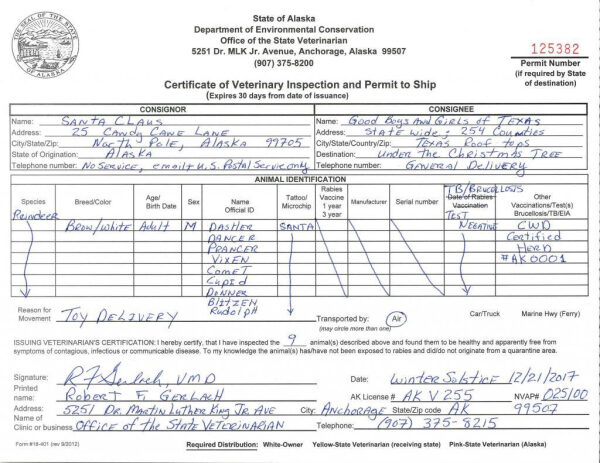 State of Alaska
Department of Environmental Conservation
Office of the State Veterinarian
5251 Dr. MLK Jr. Avenue, Anchorage, Alaska 99507
(907) 375-8200
125382
Permit Number
(if required by State
of destination)
Certificate of Veterinary Inspection and Permit to Ship
(Expires 30 days from date of issuance)
CONSIGNOR CONSIGNEE
Name: SANTA CLAUS Name: Good Boys and Girls of TEXAS
Address: 25 Candy Cane Lane Address: State wide; 254 Counties
City/State/Zip: North Pole, Alaska 99705 City/State/Country/Zip: Texas Roof tops
State of Origination: Alaska Destination: under the Christmas TREE
Telephone number: No Service, email + U.S. Postal Service only Telephone number: General Delivery
ANIMAL IDENTIFICATION
Species Breed/Color Age/ Birth Date Sex Name Official ID Tattoo/ Microchip Rabies Vaccine 1 year 3 year Manufacturer Serial number TB/Brucellosis Date of Rabies Vaccination TEST Other Vaccinations/Test(s) Brucellosis/TB/EIA
Reindeer Brow/white Adult M DASHER SANTA Negative CWD
DANCER Certified
PRANCER Herd
VIXEN #AK0001
Comet
Cupid
Donner
Blitzen
Rudolph
Reason for Movement Toy Delivery Transported by: Air Car/Truck Marine Hwy (Ferry)
(may circle more than one)
ISSUING VETERINARIAN'S CERTIFICATION: I hereby certify, that I have inspected the 9 animal(s) described above and found them to be healthy and apparently free from
symptoms of contagious, infectious or communicable disease. To my knowledge the animal(s) has/have not been exposed to rabies and did/do not originate from a quarantine area.
Signature: RF Gerlach, VMD Date: Winter Solstice 12/21/2017
Printed name: Robert F. Gerlach AK License # AK V 255 NVAP# 025100
Address: 5251 Dr. Martin Luther King Jr Ave City: Anchorage State/Zip code AK 99507
Name of Clinic or business Office of the State Veterinarian Telephone: (907) 375-8215
Form #18-401 (rev 9/2012) Required Distribution: White-Owner Yellow-State Veterinarian (receiving state) Pink-State Veterinarian (Alaska)